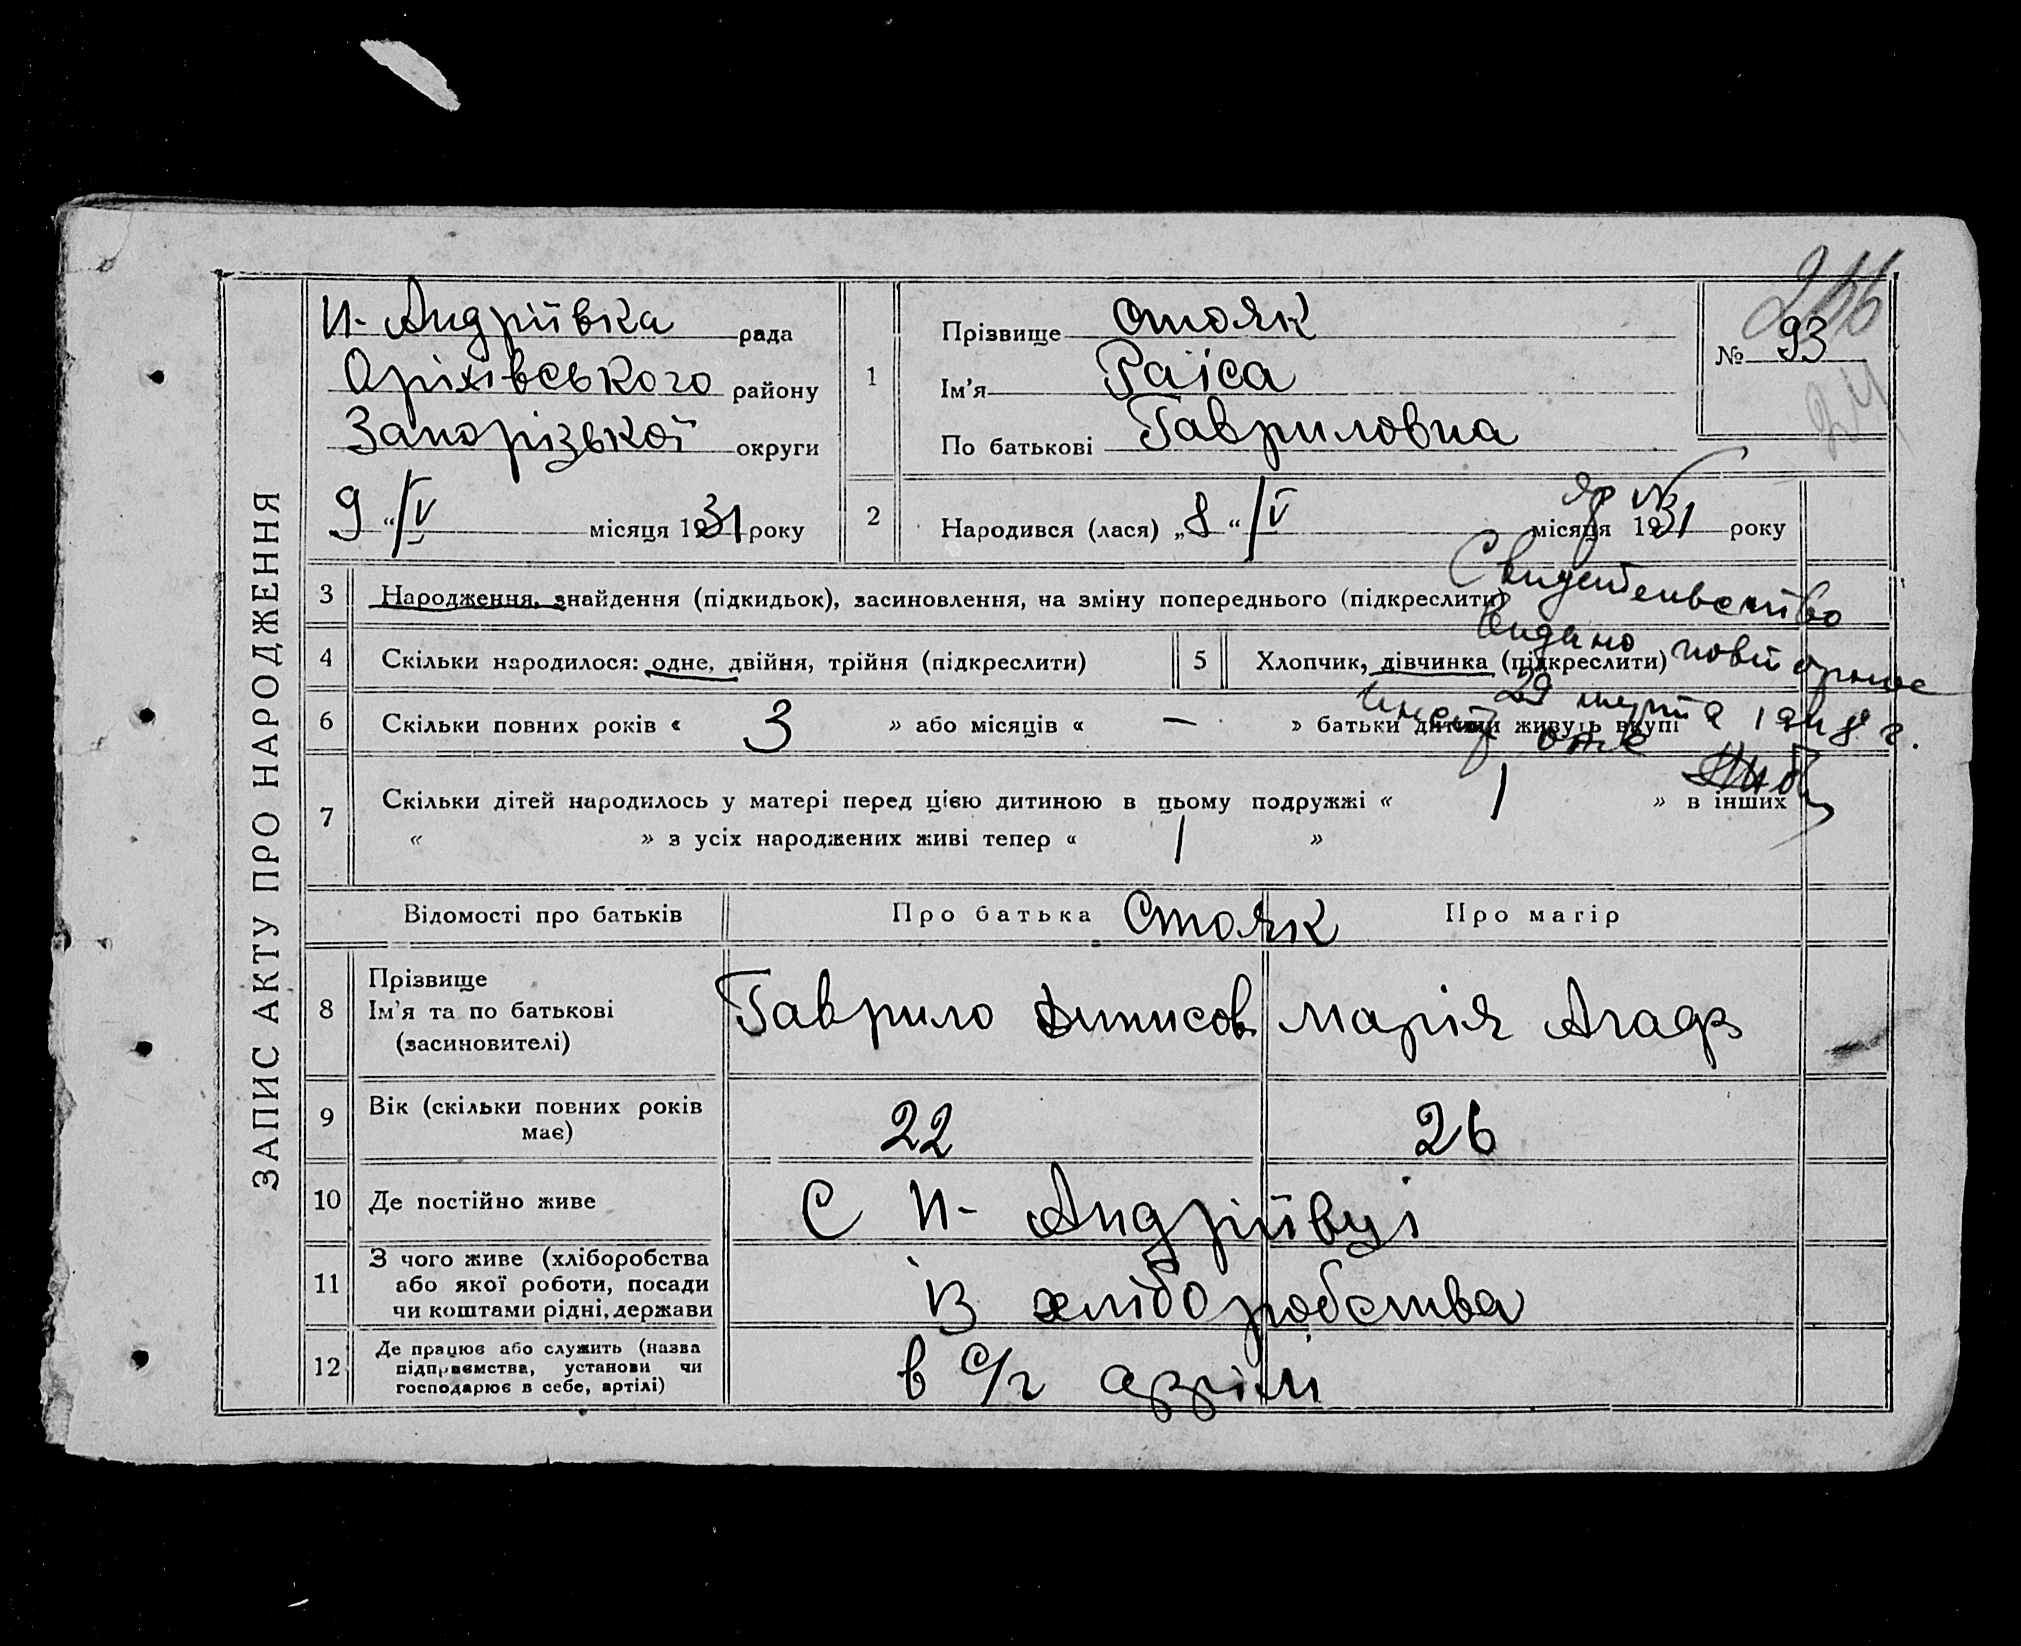 ЗАПИС АКТУ ПРО НАРОДЖЕННЯ
Н-Андріївка рада
Оріхівського району
Запорізької округи
9 "/V місяця 1931 року
1
Прізвище Стояк
Ім'я Раїса
По батькові Гавриловна
№ 93
2
Народився (лася) „8“ /V місяця 1931 року
3 Народження, знайдення (підкидьок), засиновлення, на зміну попереднього (підкреслити)
4 Скільки народилося: одне, двійня, трійня (підкреслити)
5 Хлопчик, дівчинка (підкреслити)
Свидетельство
видано
29 марта 1948 г.
6 Скільки повних років « 3 » або місяців « — » батьки дитини живуть вкупі
7 Скільки дітей народилось у матері перед цією дитиною в цьому подружжі « 1 » в інших
« » з усіх народжених живі тепер « 1 »
Відомості про батьків Про батька Про матір
Стояк
8 Прізвище
Ім'я та по батькові
(засиновителі)
Гаврило Динисов Марія Агаф
9 Вік (скільки повних років
має)
22 26
10 Де постійно живе С Н-Андріївці
11 З чого живе (хліборобства
або якої роботи, посади
чи коштами рідні, держави
із хліборобства
12 Де працює або служить (назва
підприємства, установи чи
господарює в себе, артілі)
в с/г артілі